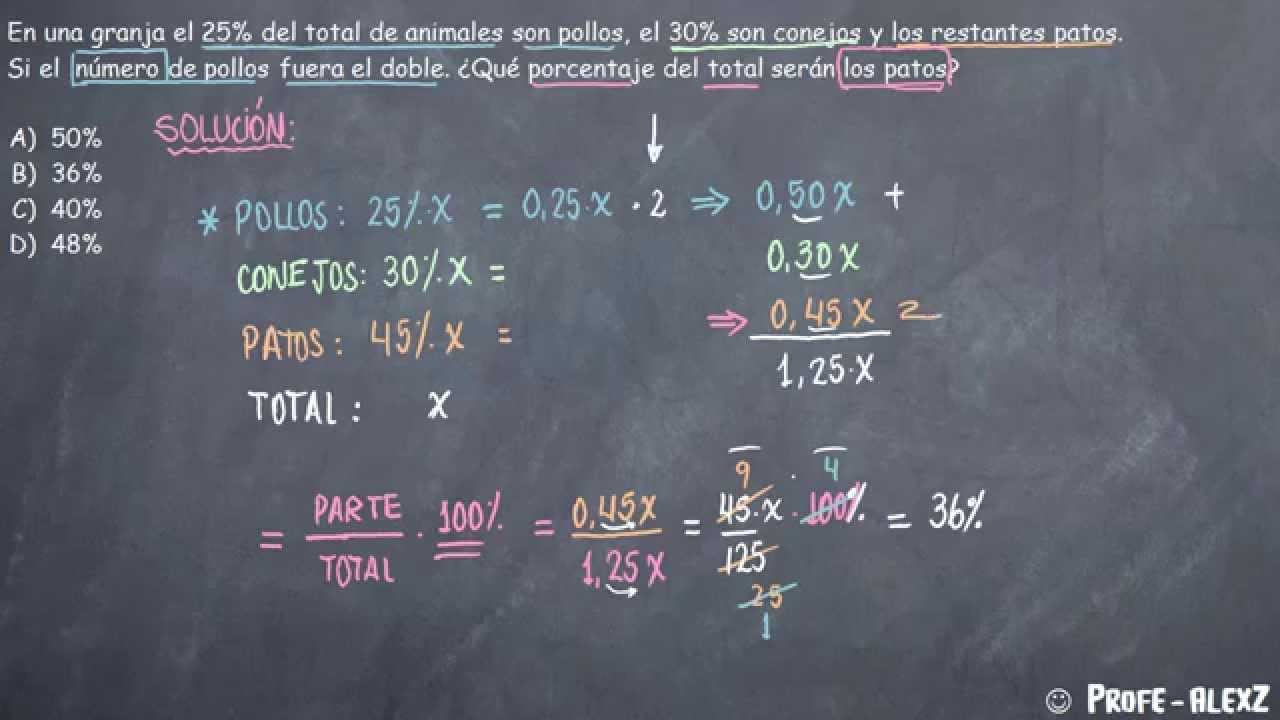 En una granja el 25% del total de animales son pollos, el 30% son conejos y los restantes patos.
Si el número de pollos fuera el doble. ¿Qué porcentaje del total serán los patos?
A) 50%
B) 36%
C) 40%
D) 48%
SOLUCIÓN:
* POLLOS: 25%·X = 0,25·X · 2 ⇒ 0,50X +
CONEJOS: 30%X = 0,30X
PATOS: 45%·X = ⇒ 0,45X =
TOTAL: X 1,25·X
= PARTE/TOTAL · 100% = 0,45X/1,25X = 45·X/125 · 100% = 36%
9 4
25
1
PROFE-ALEXZ